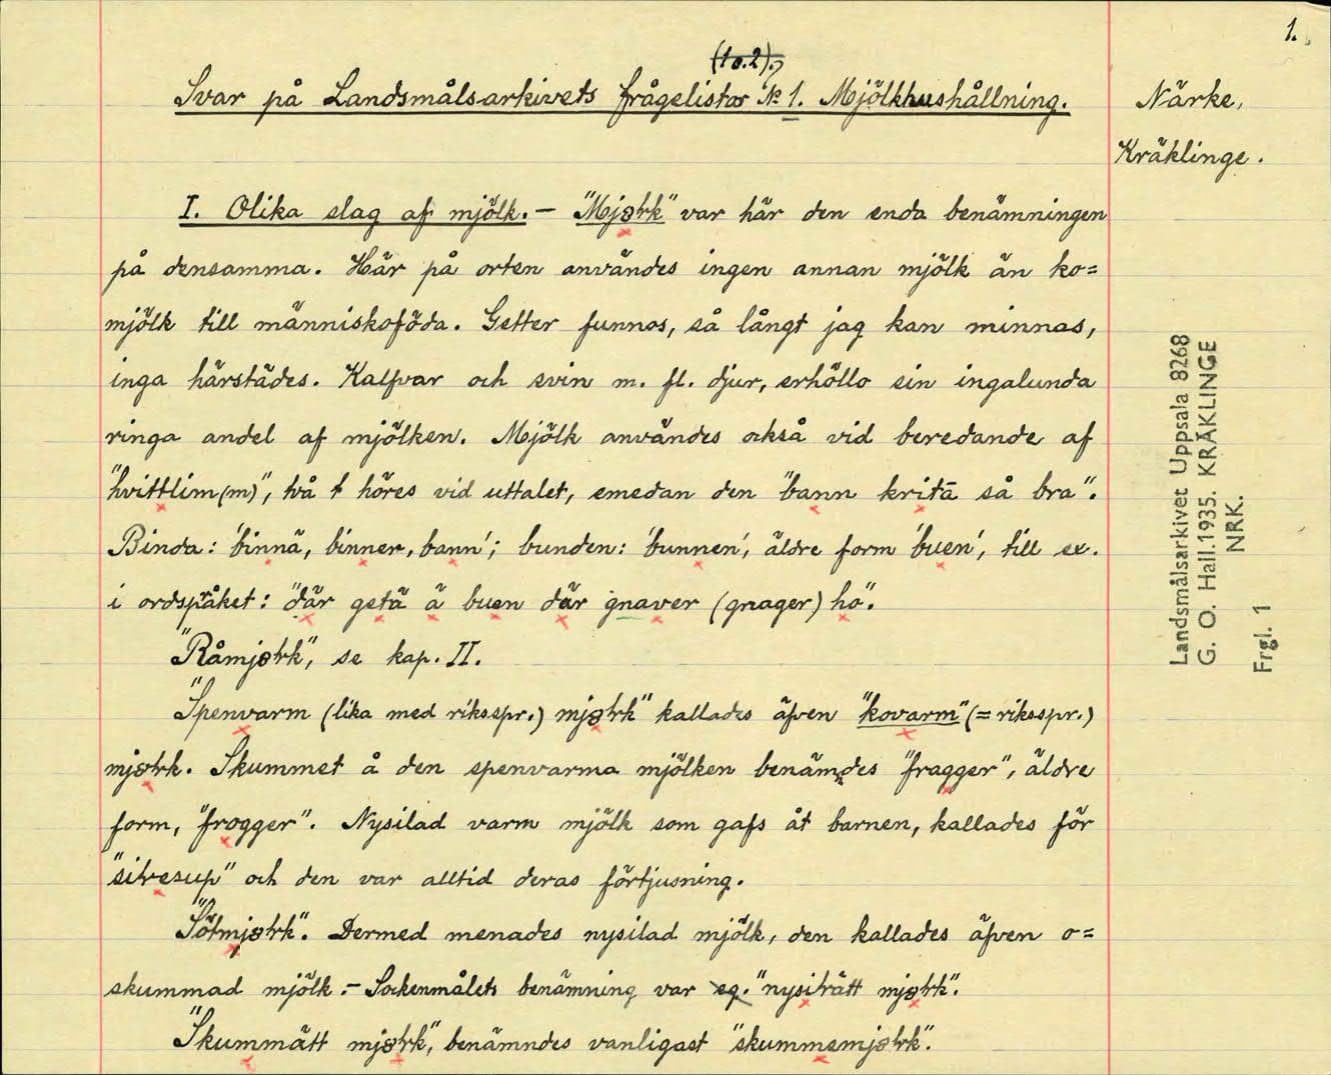 1.
(1 o. 2).
Svar på Landsmålsarkivets frågelistor № 1. Mjölkhushållning.
Närke,
Kräklinge.
I. Olika slag af mjölk. — "Mjøƚk" var här den enda benämningen
på densamma. Här på orten användes ingen annan mjölk än ko=
mjölk till människoföda. Getter funnos, så långt jag kan minnas,
inga härstädes. Kalfvar och svin m. fl. djur, erhöllo sin ingalunda
ringa andel af mjölken. Mjölk användes också vid beredande af
"hvittlim(m)", två t höres vid uttalet, emedan den "bann kritä så bra".
Binda: 'binnä, binner, bann'; bunden: 'bunnen', äldre form 'buen', till ex.
i ordspråket: "där getä ä buen där gnaver (gnager) ho".
"Råmjøƚk", se kap. II.
"Spenvarm (lika med riksspr.) mjøƚk" kallades äfven "kovarm" (= riksspr.)
mjøƚk. Skummet å den spenvarma mjölken benämdes "fragger", äldre
form, "frogger". Nysilad varm mjölk som gafs åt barnen, kallades för
"siƚvesup" och den var alltid deras förtjusning.
"Sötmjøƚk". Dermed menades nysilad mjölk, den kallades äfven o=
skummad mjölk. – Sockenmålets benämning var eg. "nysiƚrätt mjøƚk".
"Skummätt mjøƚk", benämndes vanligast "skummemjøƚk".
Landsmålsarkivet Uppsala 8268
G. O. Hall. 1935. KRÄKLINGE
NRK.
Frgl. 1